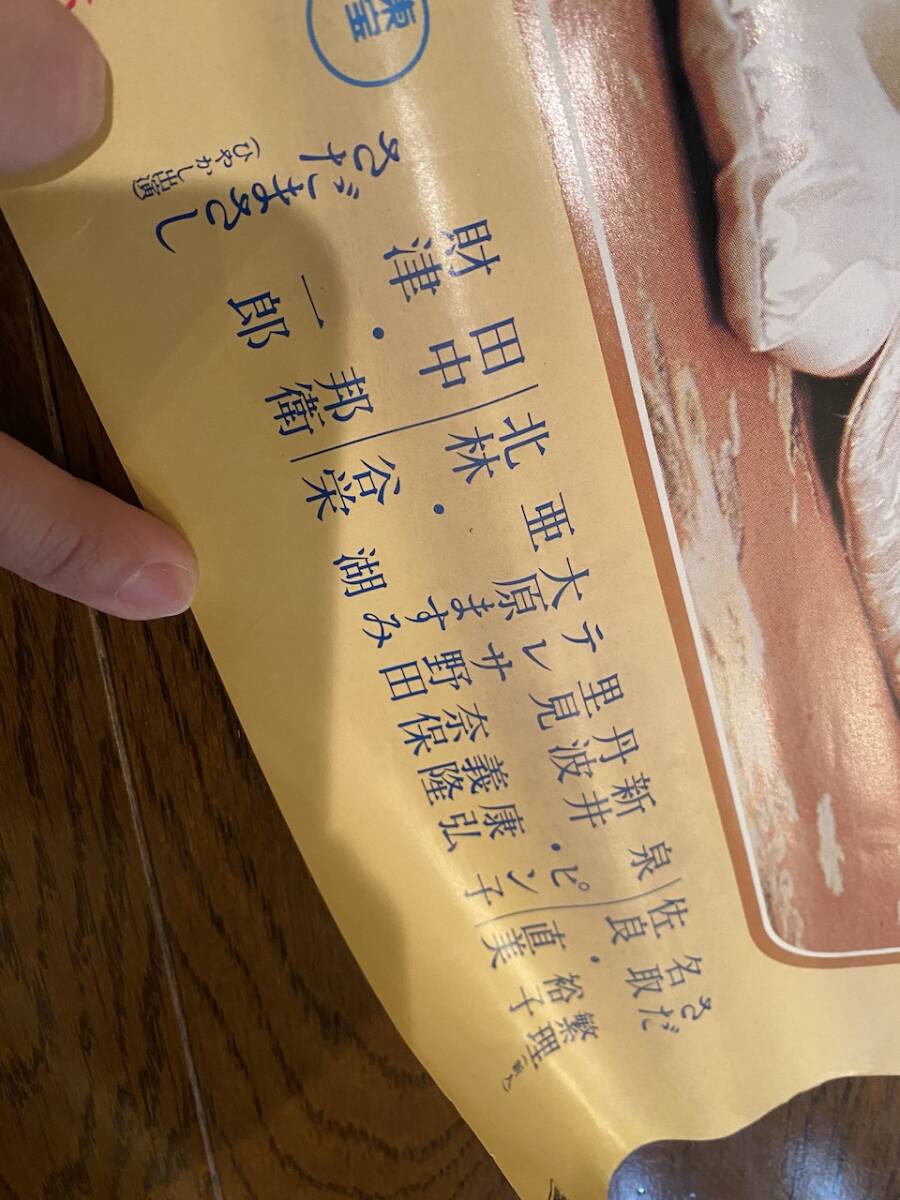 さだ繁理(新人)
名取裕子
佐良直美
泉ピン子
新井康弘
丹波義隆
里見奈保
テレサ野田
大原ますみ
亜湖
北林谷栄
田中邦衛
財津一郎
さだまさし
(ひやかし出演)
東宝